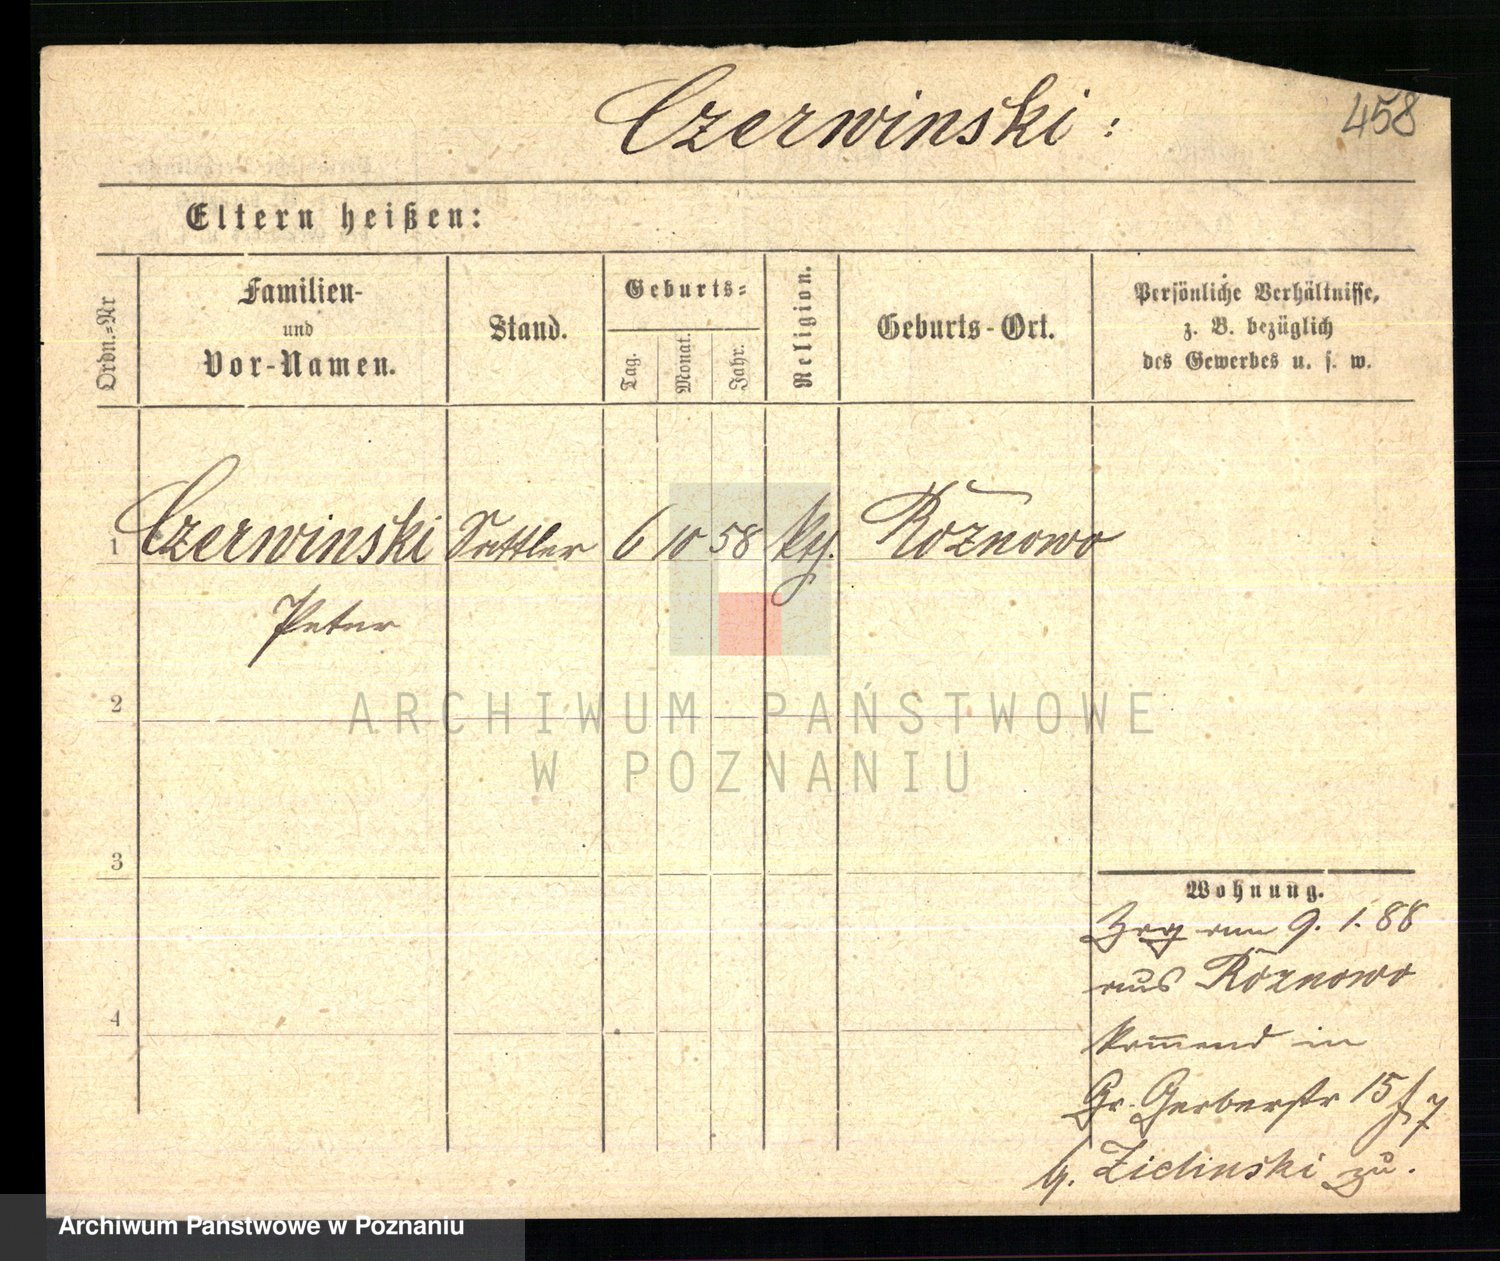 Czerwinski:
458
Eltern heißen:
Ordn.=Nr
Familien-
und
Vor-Namen.
Stand.
Geburts=
Tag.
Monat.
Jahr.
Religion.
Geburts-Ort.
Persönliche Verhältnisse,
z. B. bezüglich
des Gewerbes u. s. w.
1 Czerwinski Sattler 6 10 58 Roznowo
Peter
2
3
4
Wohnung.
am 9. 1. 88
aus Roznowo
kom̅end in
Gr. Gerberstr 15
b. Zielinski zu.
ARCHIWUM PAŃSTWOWE
W POZNANIU
Archiwum Państwowe w Poznaniu